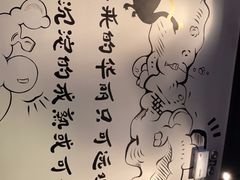 来的华丽只可远
沉淀的成熟或可